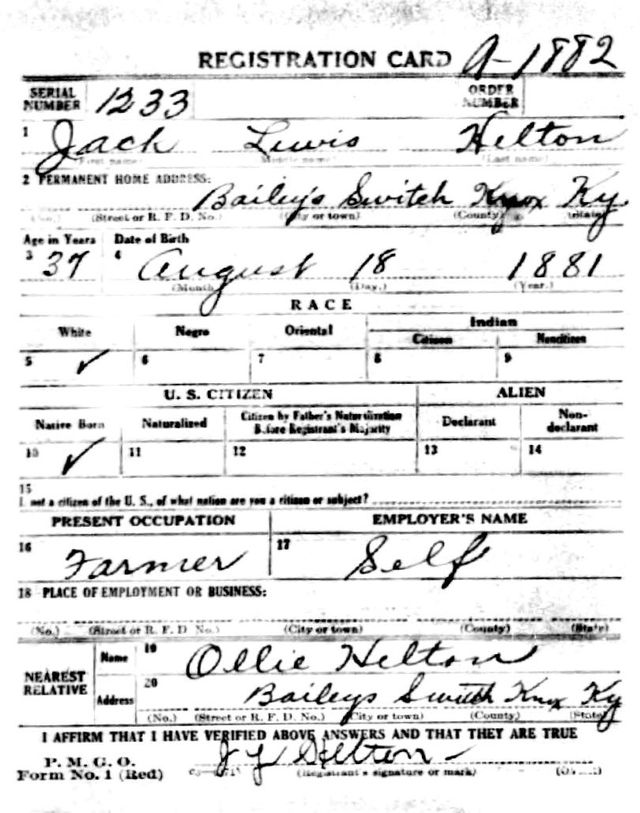 REGISTRATION CARD A-1882
SERIAL NUMBER 1233 ORDER NUMBER
1 Jack Lewis Helton
(First name) (Middle name) (Last name)
2 PERMANENT HOME ADDRESS:
Bailey's Switch Knox Ky
(No.) (Street or R. F. D. No.) (City or town) (County) (State)
Age in Years Date of Birth
3 37 4 August 18 1881
(Month.) (Day.) (Year.)
RACE
White Negro Oriental Indian
Citizen Noncitizen
5 ✓ 6 7 8 9
U. S. CITIZEN ALIEN
Native Born Naturalized Citizen by Father's Naturalization Before Registrant's Majority Declarant Non-declarant
10 ✓ 11 12 13 14
15
If not a citizen of the U. S., of what nation are you a citizen or subject?
PRESENT OCCUPATION EMPLOYER'S NAME
16 Farmer 17 Self
18 PLACE OF EMPLOYMENT OR BUSINESS:
(No.) (Street or R. F. D. No.) (City or town) (County) (State)
NEAREST RELATIVE Name 19 Ollie Helton
Address 20 Baileys Switch Knox Ky
(No.) (Street or R. F. D. No.) (City or town) (County) (State)
I AFFIRM THAT I HAVE VERIFIED ABOVE ANSWERS AND THAT THEY ARE TRUE
P. M. G. O.
Form No. 1 (Red) Helton
(Registrant's signature or mark)